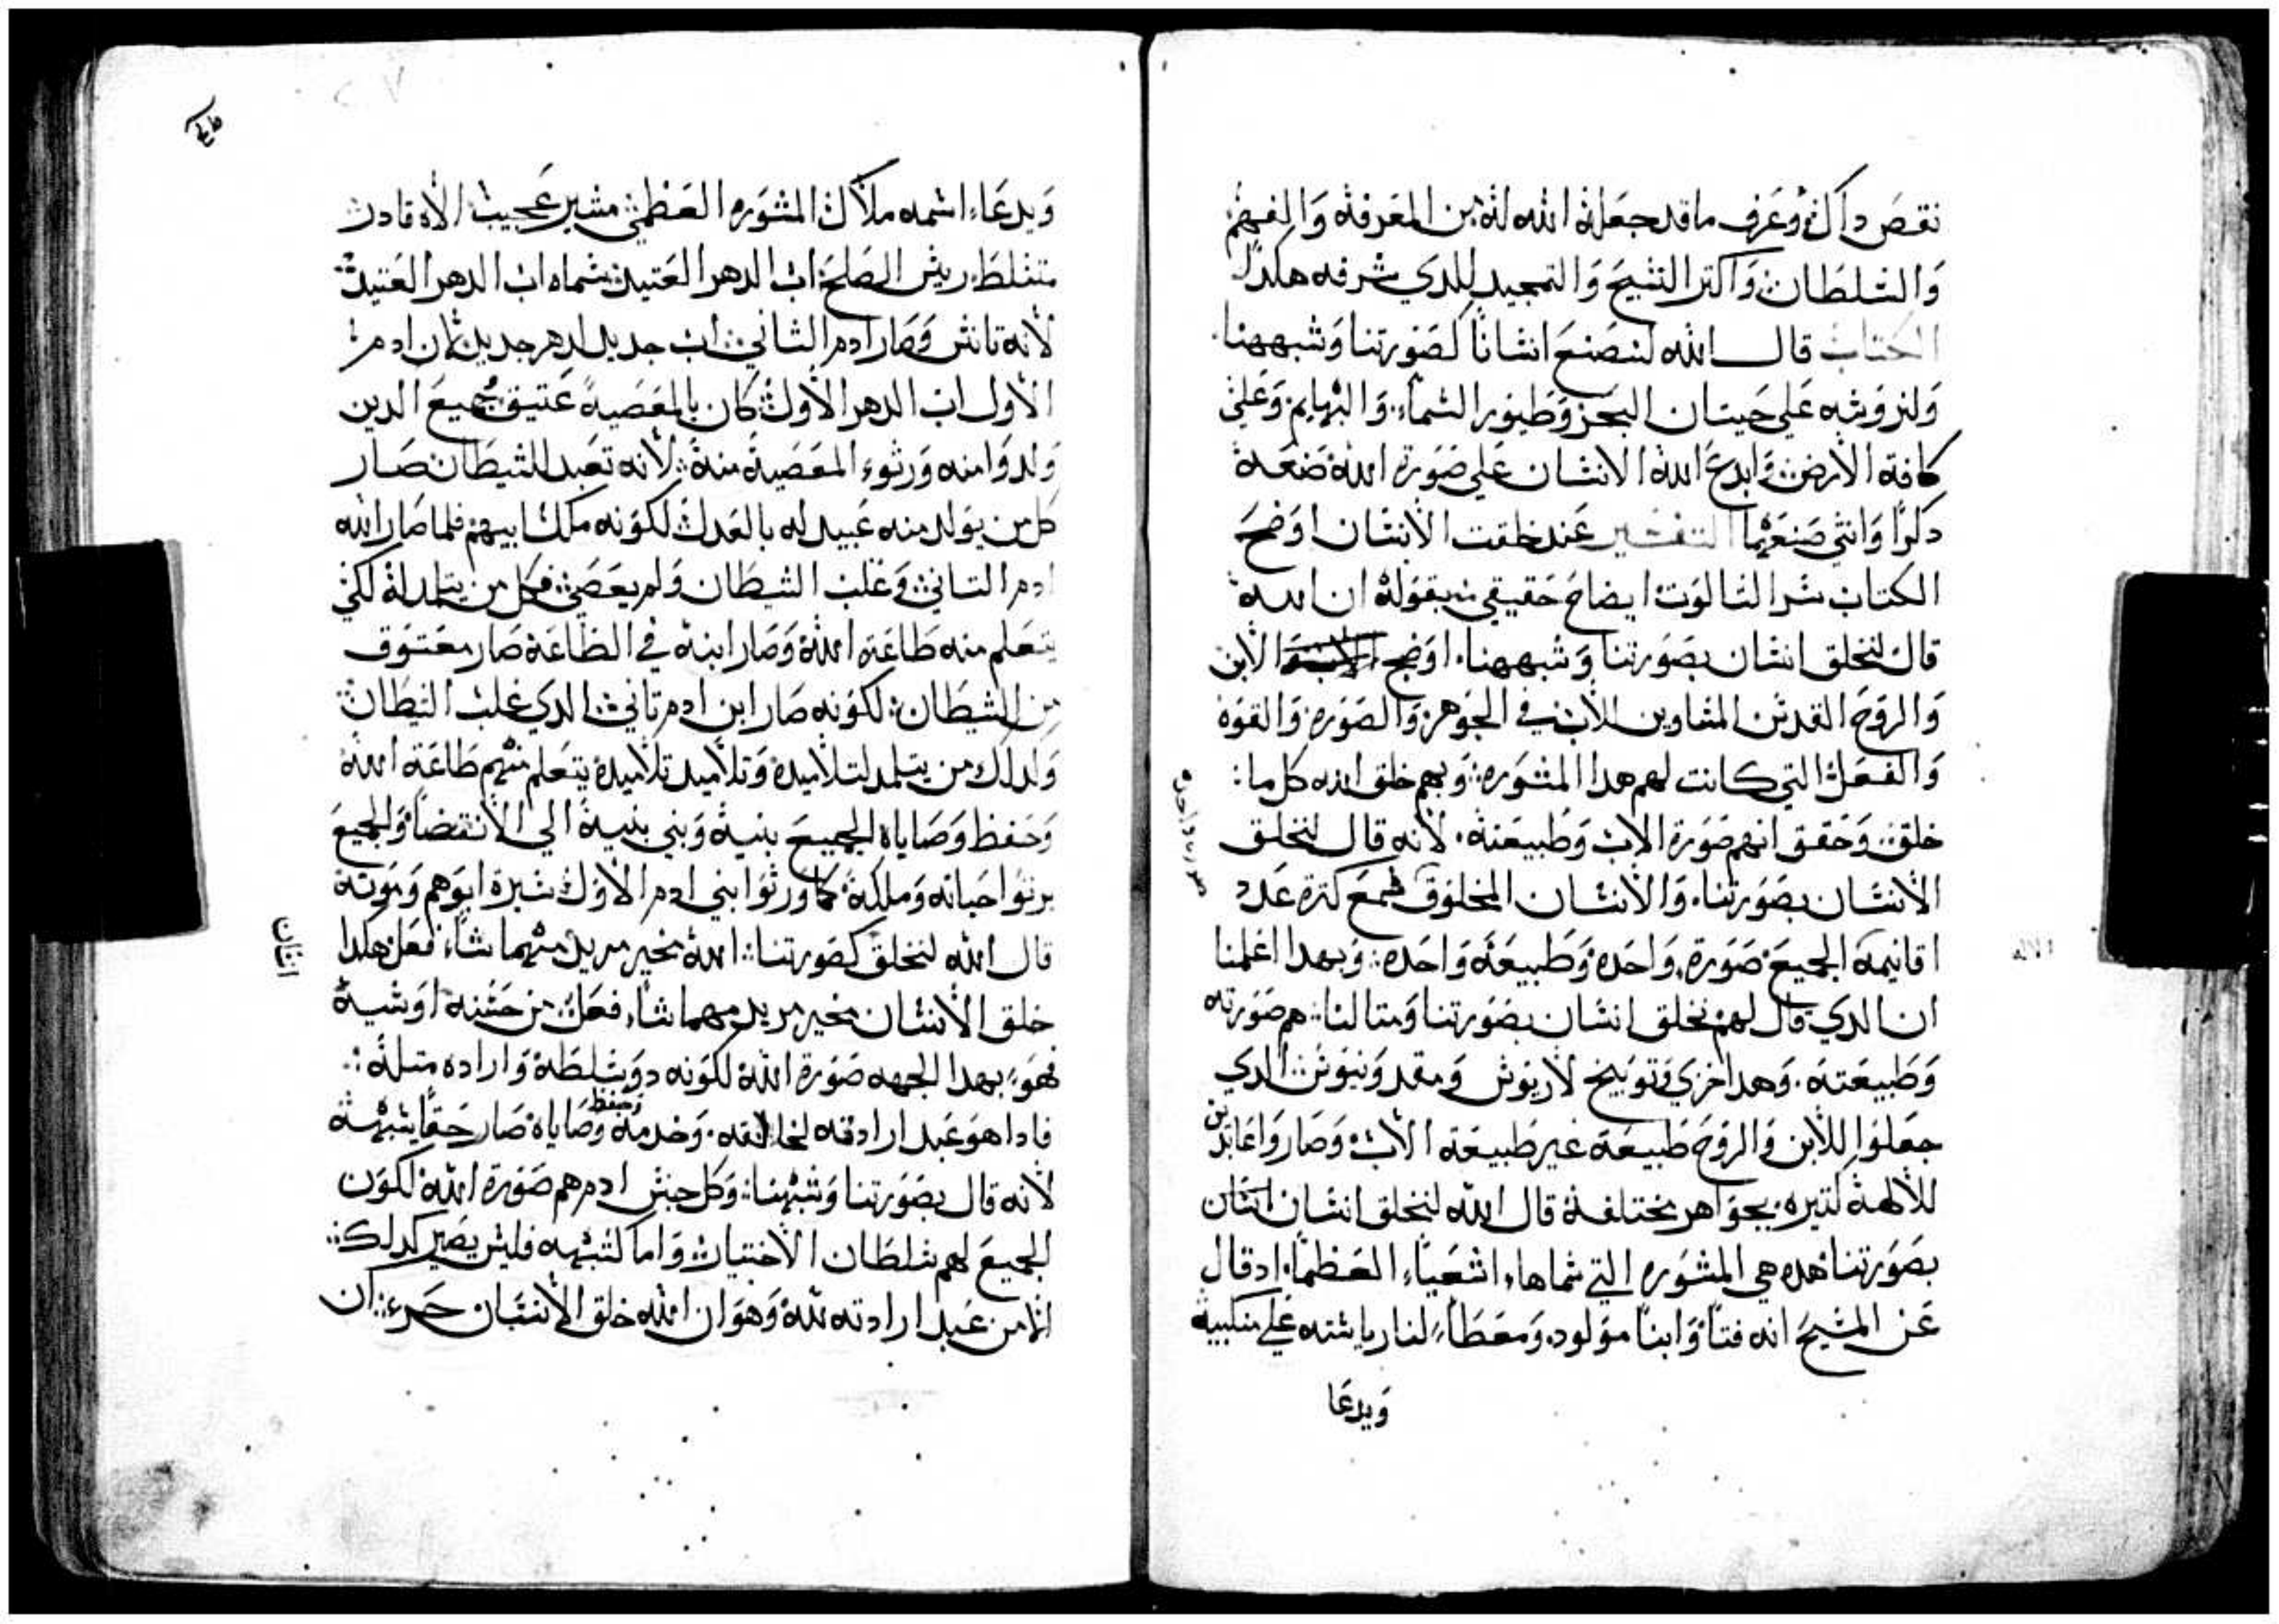 نقص داك وعرف ما قد جعله الله له من المعرفه والفهم
والسلطان واكتر التسبيح والتمجيد للدي شرفه هكدا
الكتاب قال الله لنصنع انسانا كصورتنا وشبهنا
ولنروسه علي حيتان البحر وطيور السماء والبهايم وعلي
كافة الارض وابدع الله الانسان علي صورة الله صنعه
دكرا وانتي صنعهما التفسير عند خلقت الانسان اوضح
الكتاب سر التالوت ايضاح حقيقي بقوله ان الله
قال لنخلق انسان بصورتنا وشبهنا اوضح الابن
والروح القدس المساوين للاب في الجوهر والصوره والقوه
والفعل التي كانت لهم هدا المشوره وبهم خلق الله كل ما
خلق وحقق انهم صورة الاب وطبيعته لانه قال لنخلق
الانسان بصورتنا والانسان المخلوق فمع كترة عدد
اقانيمه الجميع صورة واحده وطبيعه واحده وبهدا اعلمنا
ان الدي قال لهم نخلق انسان بصورتنا ومتالنا هم صورته
وطبيعته وهدا خزي وتوبيخ لاريوس ومقدونيوس الدي
جعلوا للابن والروح طبيعه غير طبيعة الاب وصاروا عابدين
للالهة كتيره بجواهر مختلفة قال الله لنخلق انسان
بصورتنا هده هي المشوره التي سماها اشعيا العظما اد قال
عن المسيح انه فتا وابنا مولود ومعطا لنا رياسته علي منكبيه
ويدعا
ويدعا اسمه ملاك المشوره العظمي مشير عجيب الاه قادر
متسلط ريس الصلح اب الدهر العتيد سماه اب الدهر العتيد
لانه تانس وصار ادم الثاني اب جديد لدهر جديد لان ادم
الاول اب الدهر الاول كان بالمعصية عتيق جميع الدين
ولدوا منه ورثوا المعصية منه لانه تعبد للشيطان صار
كل من يولد منه عبيد له بالعدل لكونه ملك ابيهم فلما صار الله
ادم التاني وغلب الشيطان ولم يعصي فكل من يتلمد له لكي
يتعلم منه طاعة الله وصار ابنه في الطاعة صار معتوق
من الشيطان لكونه صار ابن ادم تاني الدي غلب الشيطان
ولدلك من يتلمد لتلاميده وتلاميد تلاميده يتعلم منهم طاعة الله
وحفظ وصاياه الجميع بنيه وبني بنيه الي الانقضا والجميع
يرتوا حياته وملكه كما ورثوا بني ادم الاول سيرة ابوهم وموته
قال الله لنخلق كصورتنا الله مخير مريد مهما شاء فعل هكدا
خلق الانسان مخير مريد مهما شاء فعل من حسنه او سيه
فهو بهدا الجهه صورة الله لكونه دو سلطه واراده متله
فادا هو عبد ارادته لخالقه وخدمه وحفظ وصاياه صار حقا يشبهه
لانه قال بصورتنا وشبهنا وكل جنس ادم هم صورة الله لكون
الجميع لهم سلطان الاختيار واما كشبهه فليس يصير كدلك
الا من عبد ارادته لله وهو ان الله خلق الانسان حر ان
اتنان